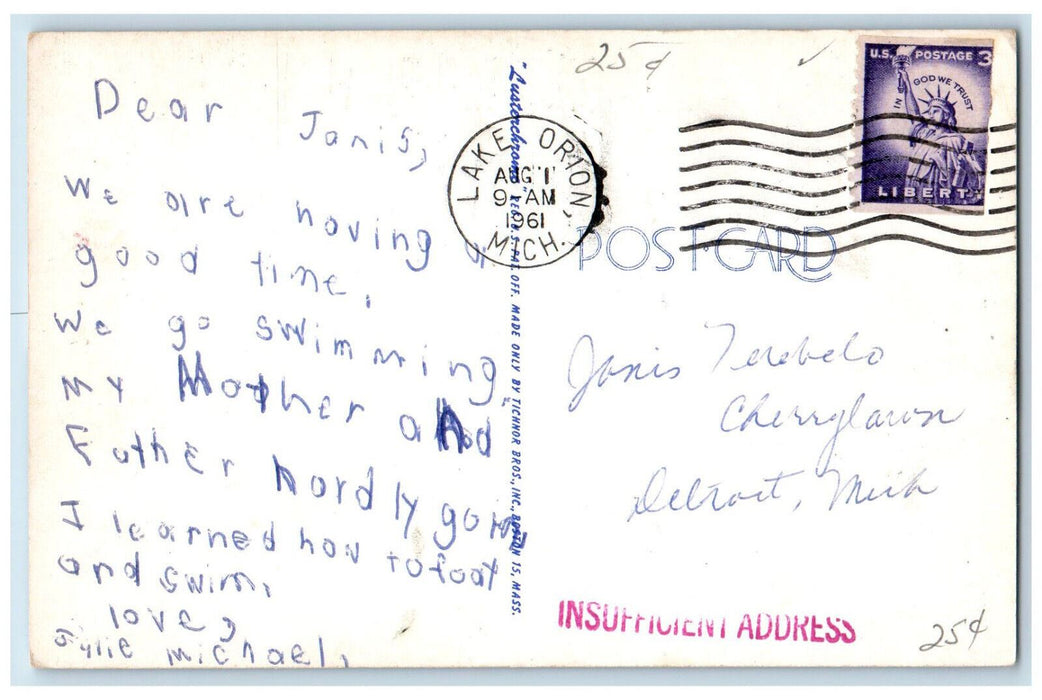 Dear Janis,
We are having a
good time.
We go swimming
my Mother and
Father hardly go in.
I learned how to foat
and swim.
love,
Julie Michael,
"Lusterchrome" REG. U.S. PAT. OFF. MADE ONLY BY TICHNOR BROS., INC., BOSTON 15, MASS.
25¢
LAKE ORION, MICH.
AUG 1
9 AM
1961
U.S. POSTAGE 3
IN GOD WE TRUST
LIBERTY
POST CARD
Janis Terebelo
Cherrylawn
Detroit, Mich
INSUFFICIENT ADDRESS
25¢